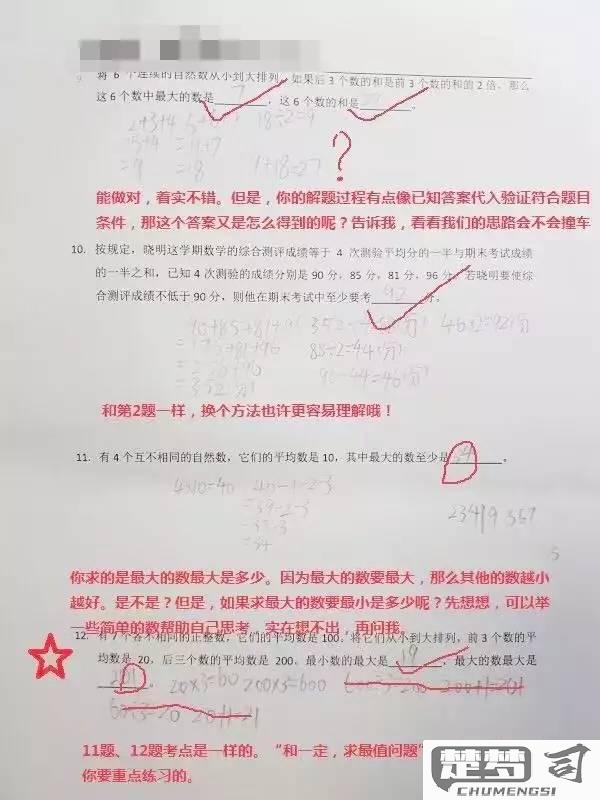 9. 将 6 个连续的自然数从小到大排列，如果后 3 个数的和是前 3 个数的和的 2 倍，那么
这 6 个数中最大的数是 7 ，这 6 个数的和是 27
2+3+4 5+6 18÷2=9
=5+4 =11+7
=9 =18 9+18=27
?
能做对，着实不错。但是，你的解题过程有点像已知答案代入验证符合题目
条件，那这个答案又是怎么得到的呢？告诉我，看看我们的思路会不会撞车
10. 按规定，晓明这学期数学的综合测评成绩等于 4 次测验平均分的一半与期末考试成绩
的一半之和，已知 4 次测验的成绩分别是 90 分，85 分，81 分，96 分，若晓明要使综
合测评成绩不低于 90 分，则他在期末考试中至少要考 92 分。
90+85+81+96 46×2=92(分)
=175+81+96 88÷2=44(分)
=256+96 90-44=46(分)
=352(分)
和第2题一样，换个方法也许更容易理解哦！
11. 有 4 个互不相同的自然数，它们的平均数是 10，其中最大的数至少是 34 。
4×10=40 40-1-2-3
=39-2-3
=37-3
=34
你求的是最大的数最大是多少。因为最大的数要最大，那么其他的数越小
越好。是不是？但是，如果求最大的数要最小是多少呢？先想想，可以举
一些简单的数帮助自己思考，实在想不出，再问我。
12. 有 7 个各不相同的正整数，它们的平均数是 100，将它们从小到大排列，前 3 个数的平
均数是 20，后三个数的平均数是 200，最小数的最大是 19 ，最大的数最大是
201 。 20×3=60 200×3=600 600÷3=200 200+1=201
60÷3=20 20+1=21
11题、12题考点是一样的。“和一定，求最值问题”
你要重点练习的。
楚梦司
CHUMENGSI